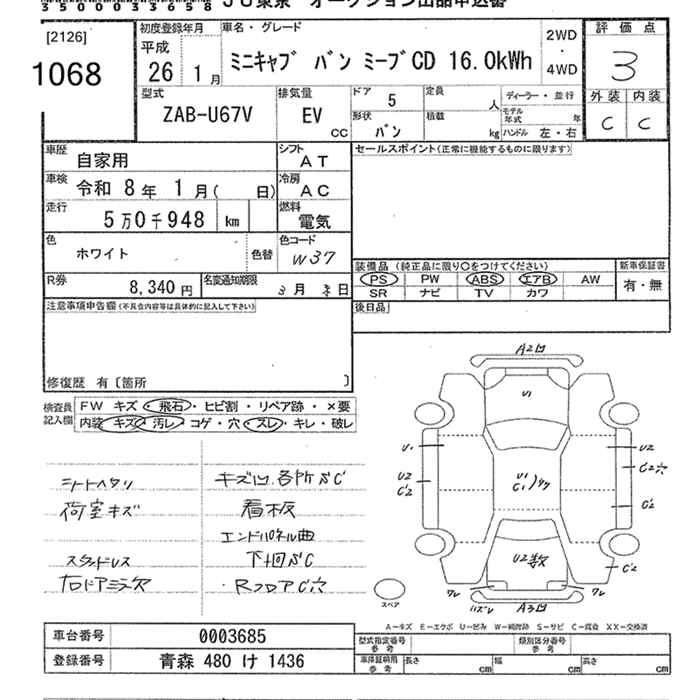 350003098
JU東京 オークション出品申込書
[2126]
1068
初度登録年月
平成
26年 1月
車名・グレード
ミニキャブ バン ミーブCD 16.0kWh
2WD
・
4WD
評価点
3
型式
ZAB-U67V
排気量
EV
CC
ドア
5
形状
バン
定員
人
積載
kg
ディーラー・並行
モデル年式
年
ハンドル 左・右
外装 内装
C C
車歴
自家用
シフト
AT
セールスポイント(正常に機能するものに限ります)
車検
令和 8年 1月( 日)
冷房
AC
走行
5万0千948 km
燃料
電気
色
ホワイト
色替
色コード
W37
装備品 (純正品に限り○をつけてください)
新車保証書
R券
8,340円
名変通知期限
月 日
PS PW ABS エアB AW
SR ナビ TV カワ
有・無
注意事項申告欄(不具合内容等は具体的に記入して下さい)
後日品
修復歴 有〔箇所 〕
検査員記入欄
FW キズ・飛石・ヒビ割・リペア跡・×要
内装 キズ・汚レ・コゲ・穴・スレ・キレ・破レ
シートヘタリ
荷室キズ
スタッドレス
右ドアミラー欠
キズ凹各所サC
看板
エンドパネル曲
下廻サC
RフロアC穴
A2凹
U1
U1
U2
C2
U1
C1
U2
C2穴
C2
C2
U2数
ワレ
ワレ
A3凹
スペア
A-キズ E-エクボ U-凹み W-補修跡 S-サビ C-腐食 XX-交換済
車台番号
0003685
型式指定番号
参考
類別区分番号
参考
登録番号
青森 480 け 1436
車庫証明用
参考
長さ cm
幅 cm
高さ cm